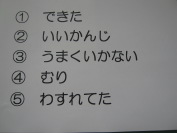 ① できた
② いいかんじ
③ うまくいかない
④ むり
⑤ わすれてた